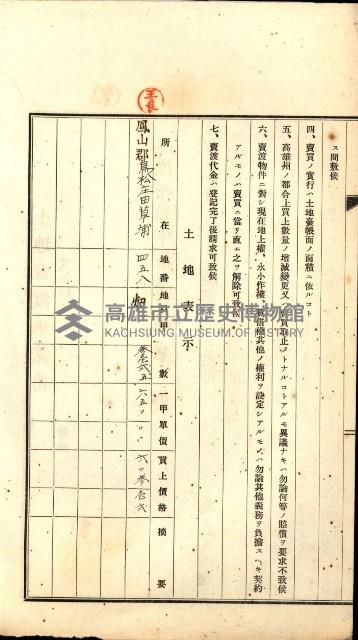 ス間敷候
四、賣買ノ實行ハ土地臺帳面ノ面積ニ依ルコト
五、高雄州ノ都合上買上數量ノ增減變更又ハ賣買取止メトナルコトアルモ異議ナキハ勿論何等ノ賠償ヲ要求不致候
六、賣渡物件ニ對シ現在地上權、永小作權、賃借權其他ノ權利ヲ設定シアルモノハ勿論其他義務ヲ負擔スヘキ契約
アルモノハ賣買ニ當リ直ニ之ヲ解除可致候
七、賣渡代金ハ登記完了後請求可致候
土地表示
所在 地番 地目 甲數 一甲單價 買上價格 摘要
鳳山郡鳥松庄田草埔 四五八 畑
高雄市立歷史博物館
KAOHSIUNG MUSEUM OF HISTORY